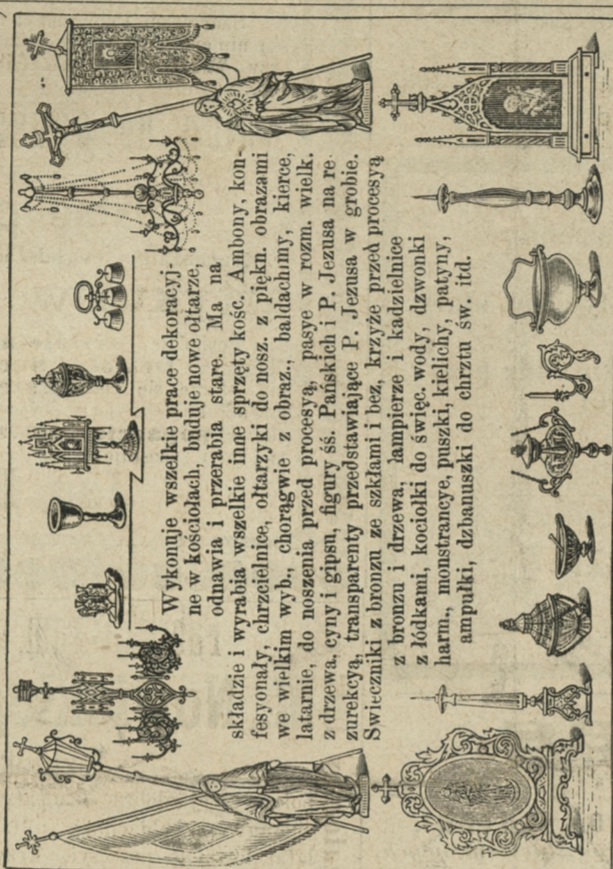 Wykonuje wszelkie prace dekoracyj-
ne w kościołach, buduje nowe ołtarze,
odnawia i przerabia stare. Ma na
składzie i wyrabia wszelkie inne sprzęty kośc. Ambony, kon-
fesyonały, chrzcielnice, ołtarzyki do nosz. z piękn. obrazami
we wielkim wyb., chorągwie z obraz., baldachimy, kierce,
latarnie, do noszenia przed procesyą, pasye w rozm. wielk.
z drzewa, cyny i gipsu, figury śś. Pańskich i P. Jezusa na re-
zurekcyą, transparenty przedstawiające P. Jezusa w grobie.
Swieczniki z bronzu ze szkłami i bez, krzyże przed procesyą
z bronzu i drzewa, łampierze i kadzielnice
z łódkami, kociołki do święc. wody, dzwonki
harm., monstrancye, puszki, kielichy, patyny,
ampułki, dzbanuszki do chrztu św. itd.